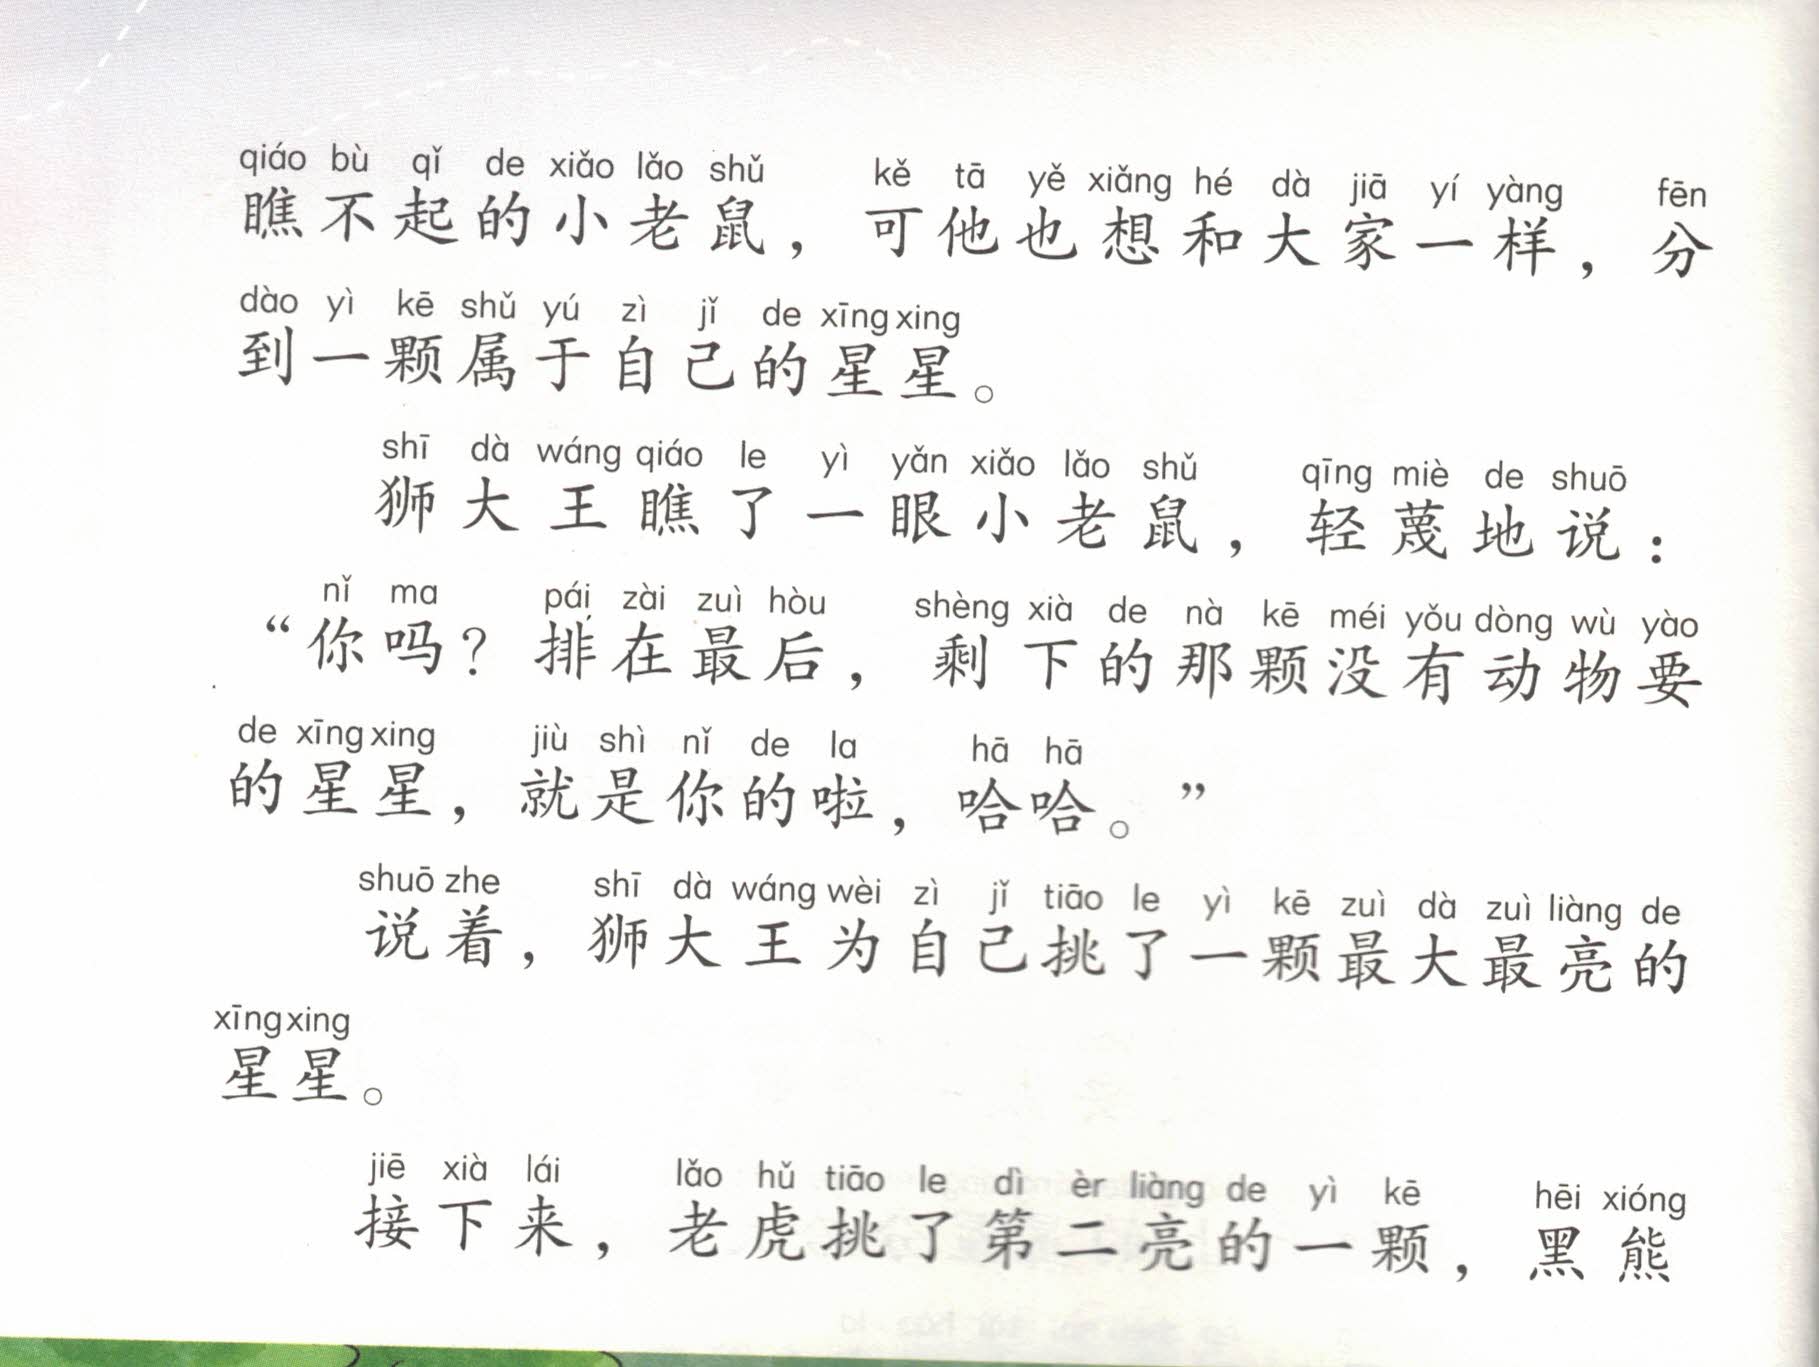 qiáo bù qǐ de xiǎo lǎo shǔ kě tā yě xiǎng hé dà jiā yí yàng fēn
瞧不起的小老鼠，可他也想和大家一样，分
dào yì kē shǔ yú zì jǐ de xīng xing
到一颗属于自己的星星。
shī dà wáng qiáo le yì yǎn xiǎo lǎo shǔ qīng miè de shuō
狮大王瞧了一眼小老鼠，轻蔑地说：
nǐ ma pái zài zuì hòu shèng xià de nà kē méi yǒu dòng wù yào
“你吗？排在最后，剩下的那颗没有动物要
de xīng xing jiù shì nǐ de la hā hā
的星星，就是你的啦，哈哈。”
shuō zhe shī dà wáng wèi zì jǐ tiāo le yì kē zuì dà zuì liàng de
说着，狮大王为自己挑了一颗最大最亮的
xīng xing
星星。
jiē xià lái lǎo hǔ tiāo le dì èr liàng de yì kē hēi xióng
接下来，老虎挑了第二亮的一颗，黑熊